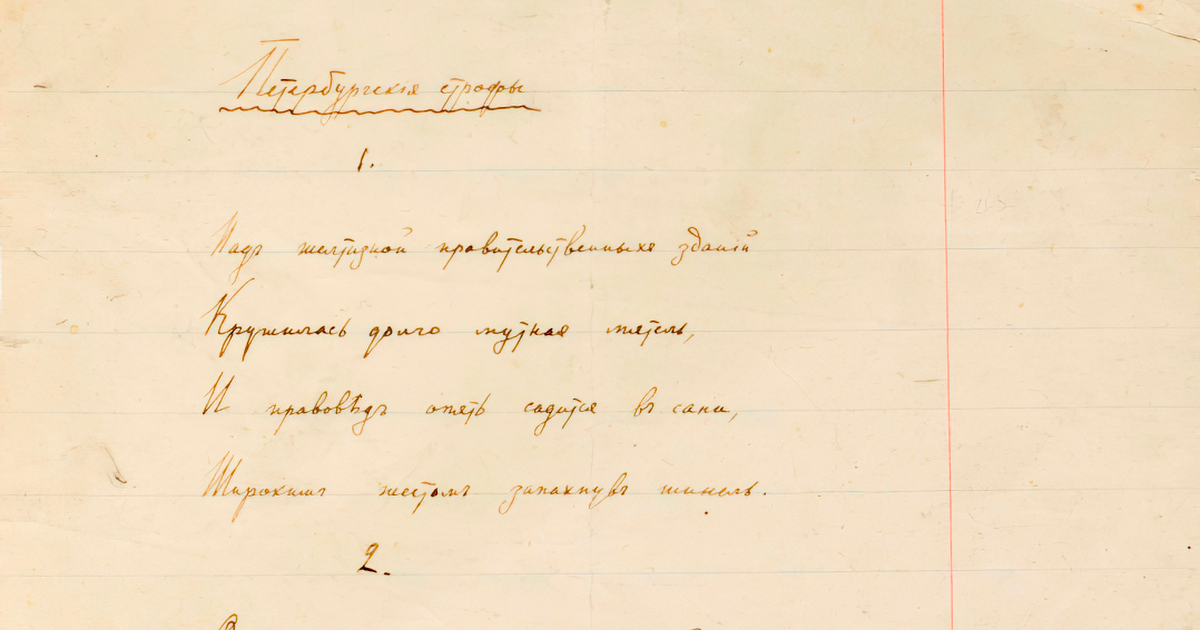 Петербургскія строфы
1.
Надъ желтизной правительственныхъ зданій
Кружилась долго мутная мятель,
И правовѣдъ опять садится въ сани,
Широкимъ жестомъ запахнувъ шинель.
2.